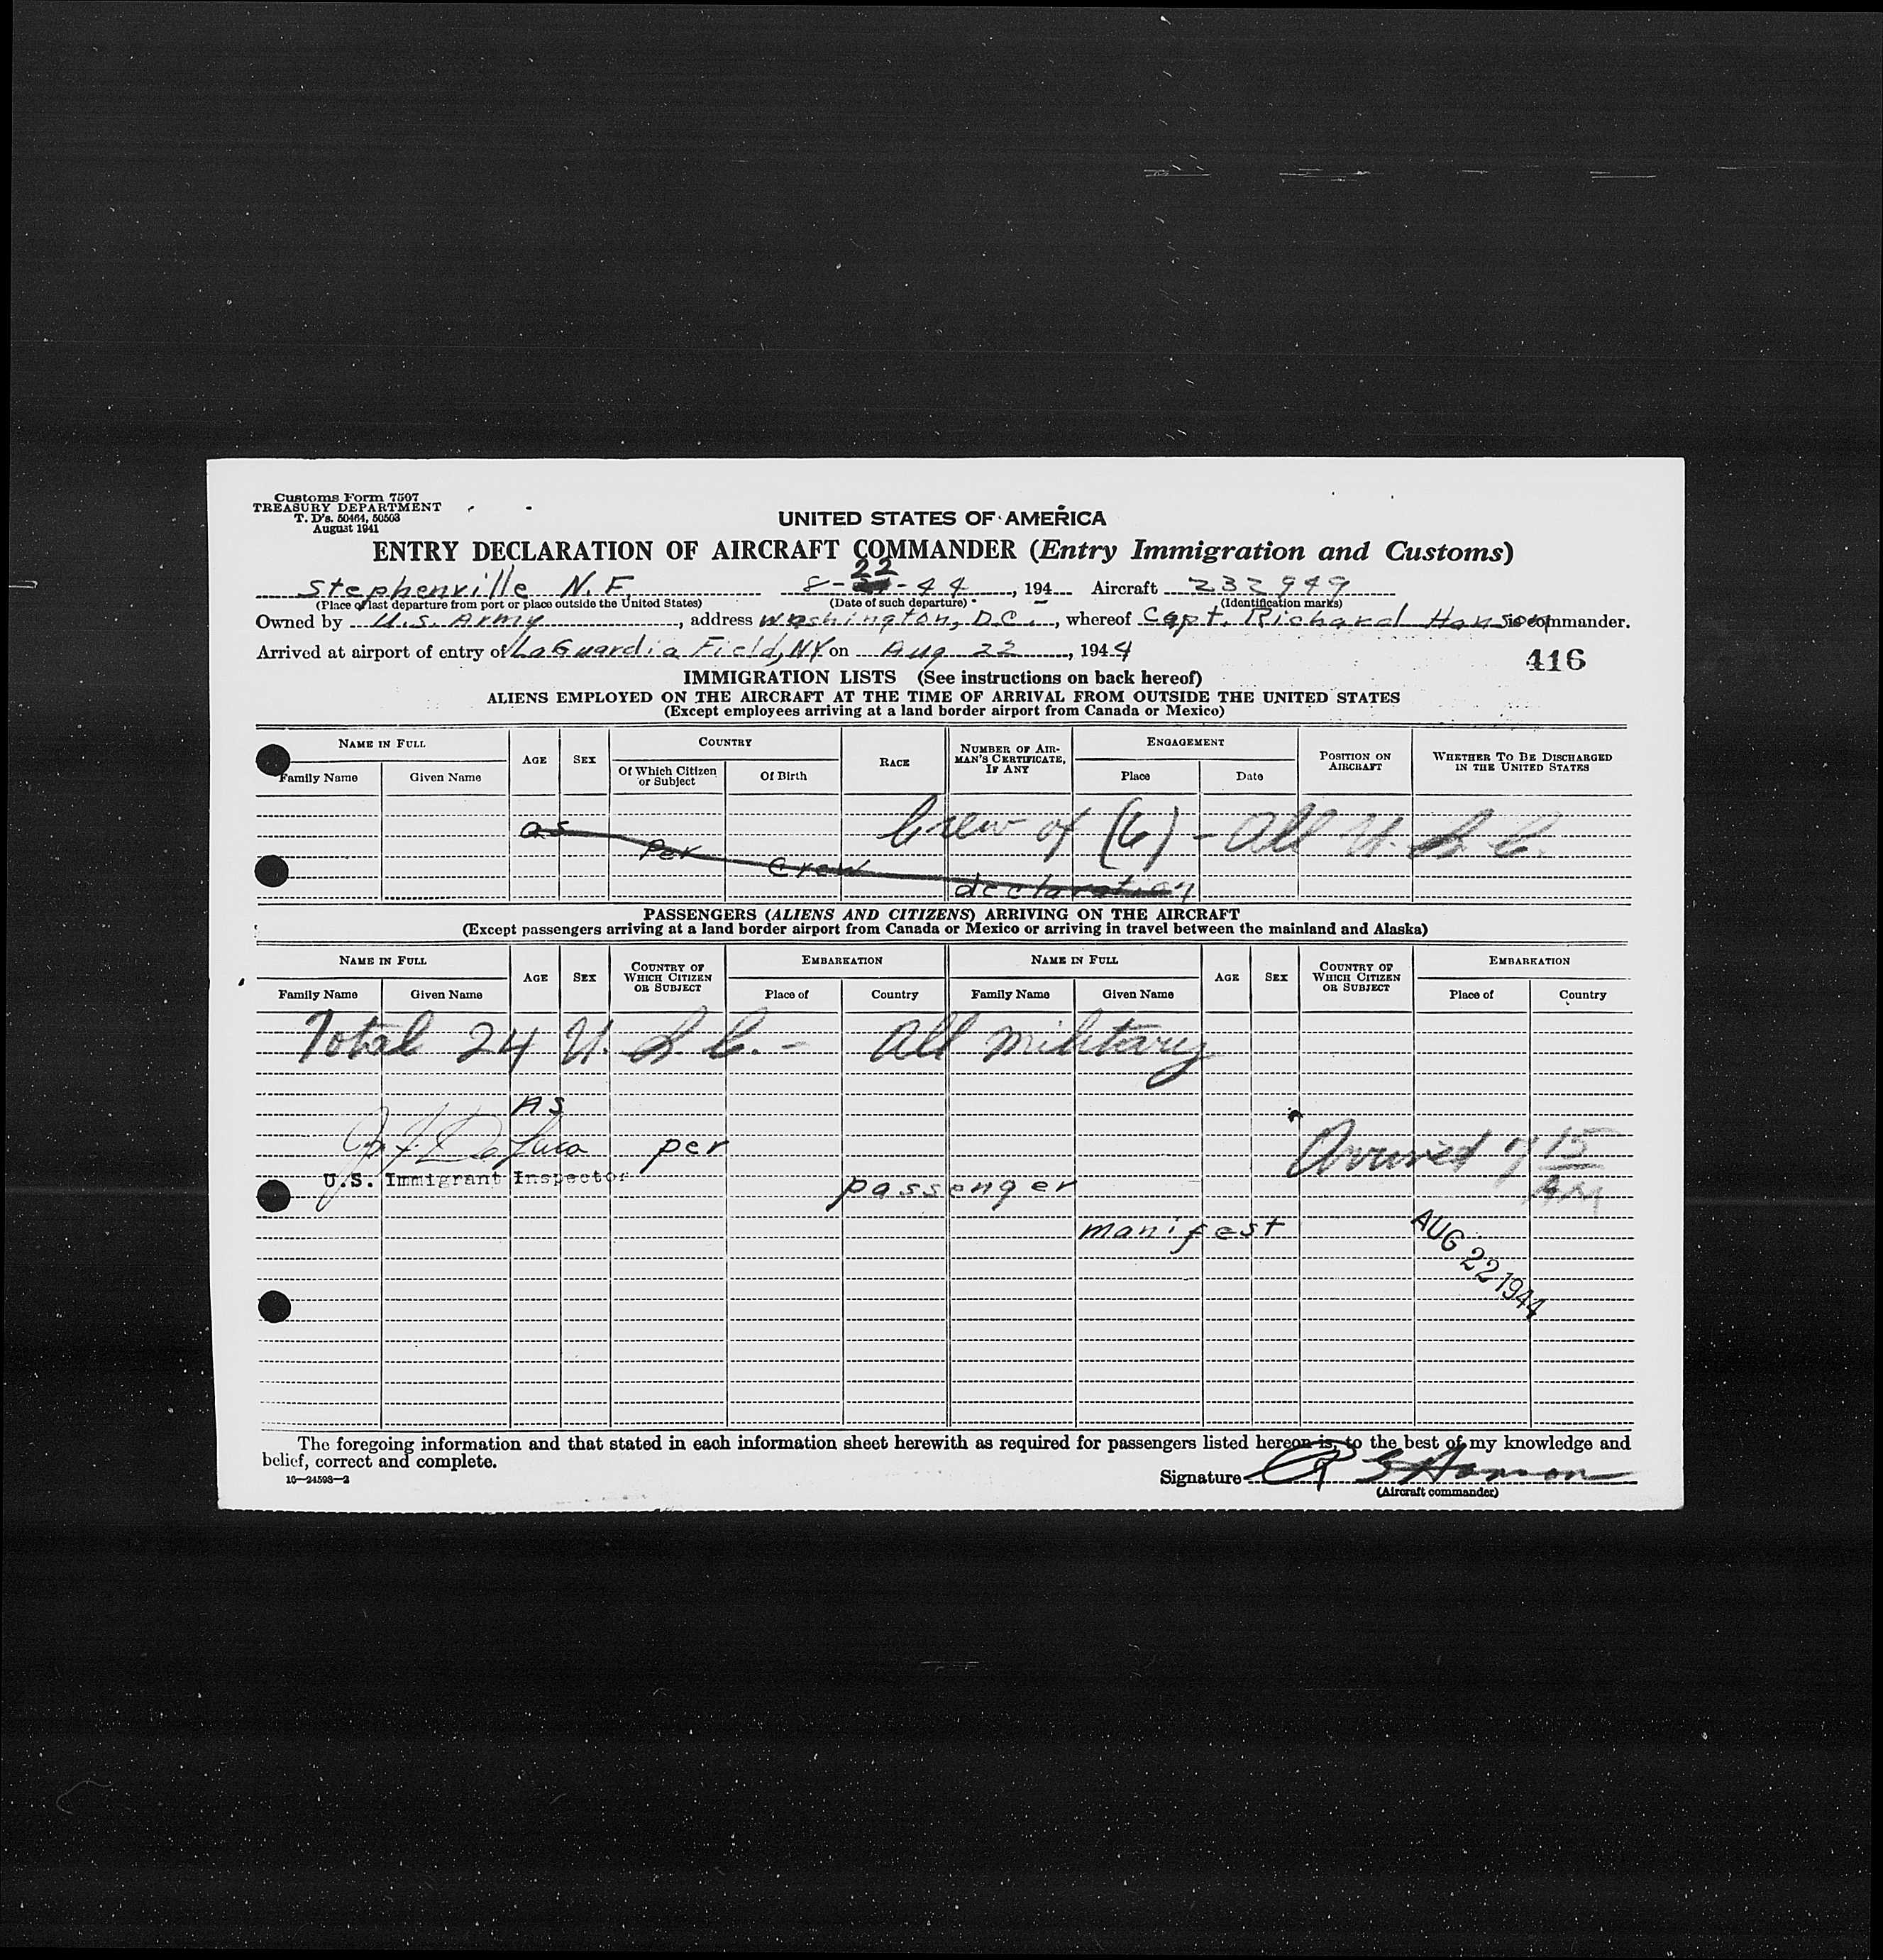 Customs Form 7507
TREASURY DEPARTMENT
T. D's. 50464, 50503
August 1941
UNITED STATES OF AMERICA
ENTRY DECLARATION OF AIRCRAFT COMMANDER (Entry Immigration and Customs)
22
Stephenville N.F. 8- -44, 194 Aircraft 232949
(Place of last departure from port or place outside the United States) (Date of such departure) (Identification marks)
Owned by U.S. Army, address Washington, D.C., whereof Capt. Richard Hanson is commander.
Arrived at airport of entry of LaGuardia Field, NY on Aug 22, 1944
416
IMMIGRATION LISTS (See instructions on back hereof)
ALIENS EMPLOYED ON THE AIRCRAFT AT THE TIME OF ARRIVAL FROM OUTSIDE THE UNITED STATES
(Except employees arriving at a land border airport from Canada or Mexico)
NAME IN FULL AGE SEX COUNTRY RACE NUMBER OF AIRMAN'S CERTIFICATE, IF ANY ENGAGEMENT POSITION ON AIRCRAFT WHETHER TO BE DISCHARGED IN THE UNITED STATES
Family Name Given Name Of Which Citizen or Subject Of Birth Place Date
Crew of (6) - All U.S.C.
as per crew declaration
PASSENGERS (ALIENS AND CITIZENS) ARRIVING ON THE AIRCRAFT
(Except passengers arriving at a land border airport from Canada or Mexico or arriving in travel between the mainland and Alaska)
NAME IN FULL AGE SEX COUNTRY OF WHICH CITIZEN OR SUBJECT EMBARKATION NAME IN FULL AGE SEX COUNTRY OF WHICH CITIZEN OR SUBJECT EMBARKATION
Family Name Given Name Place of Country Family Name Given Name Place of Country
Total 24 U.S.C. - All military
As
per
U.S. Immigrant Inspector
passenger
manifest
Arrived 9 15 AM
AUG 22 1944
The foregoing information and that stated in each information sheet herewith as required for passengers listed hereon is, to the best of my knowledge and
belief, correct and complete.
16—24598—2
Signature R S Hanson
(Aircraft commander)